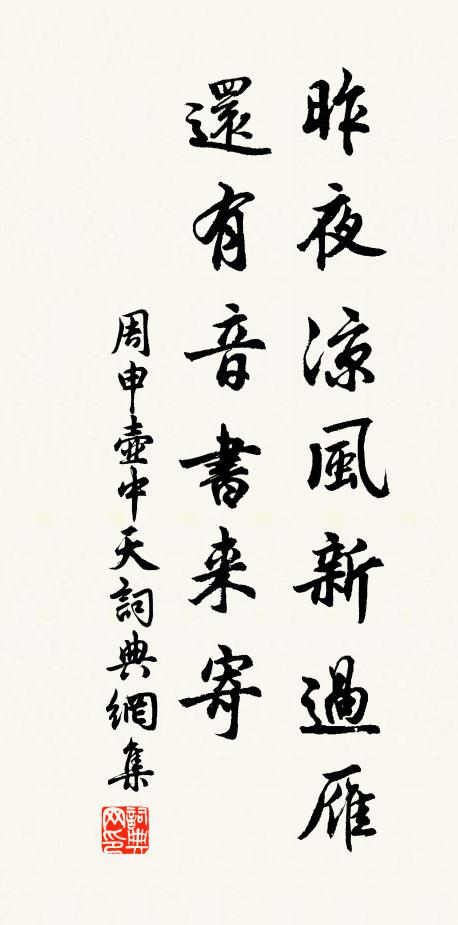 昨夜凉風新過雁
還有音書来寄
周申壺中天詞典網集
詞典网印